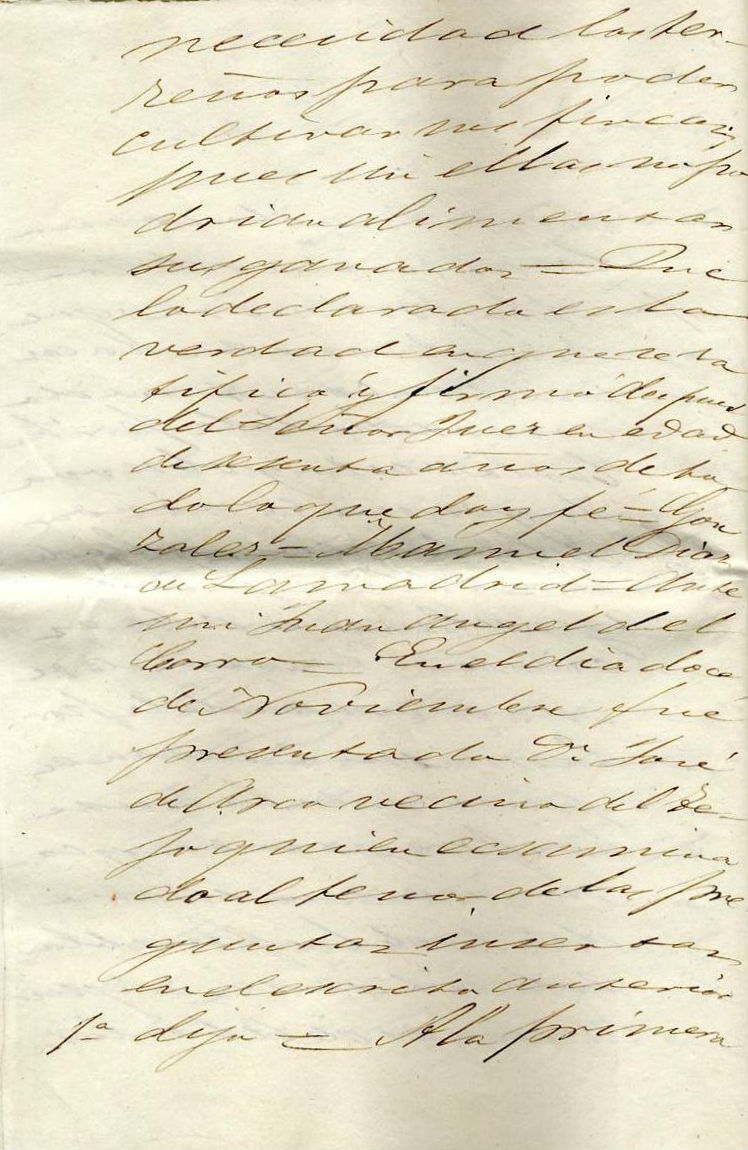 necesidad los ter-
renos para poder
cultivar sus fincas,
pues sin ellas no po
drian alimentar
sus ganados = Que
lo declarado es la
verdad en que se ra
tifica y firmó despues
del Señor Juez en edad
de sesenta años de to
do lo que doy fé = Gon
zalez = Manuel Diaz
de Lamadrid = Ante
mi Juan Angel del
Corro = En el dia doce
de Noviembre fue
presentado Dn José
de Arco vecino del Te-
jo quien ecsamina
do al tenor de las pre
guntas insertas
en el escrito anterior
1a dijo = A la primera